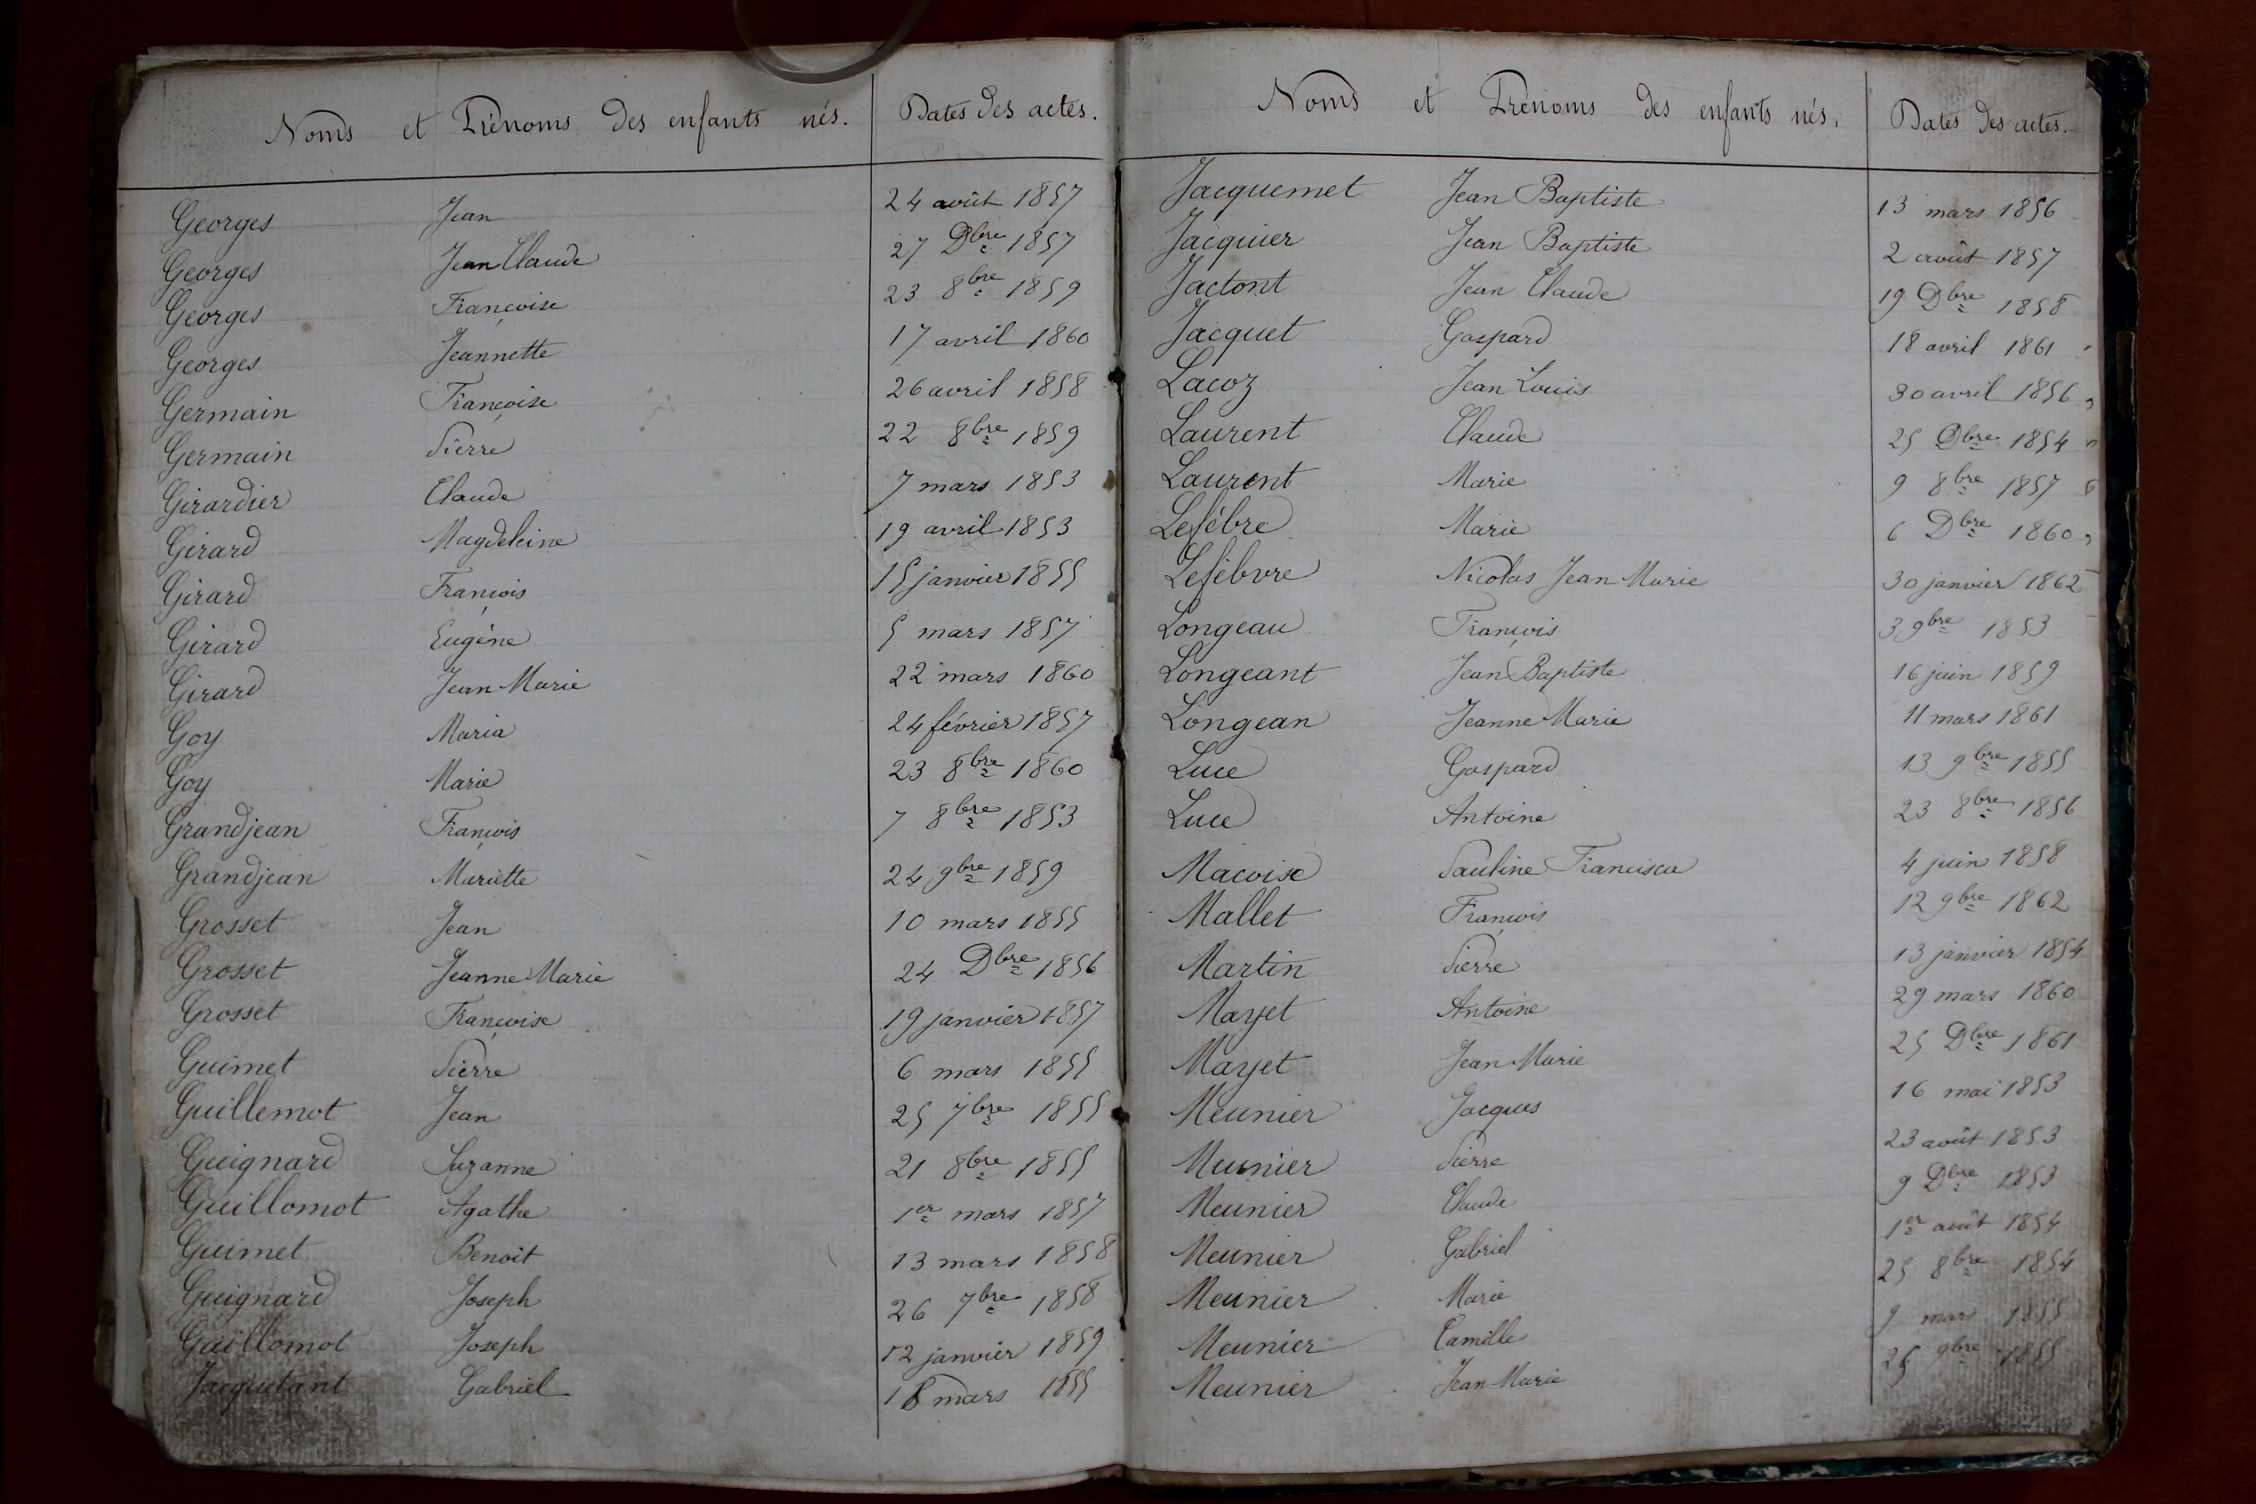 Noms et Prénoms des enfants nés. Dates des actes.
Georges Jean 24 août 1857
Georges Jean Claude 27 Dbre 1857
Georges Françoise 23 8bre 1859
Georges Jeannette 17 avril 1860
Germain Françoise 26 avril 1858
Germain Pierre 22 8bre 1859
Girardier Claude 7 mars 1853
Girard Magdeleine 19 avril 1853
Girard François 15 janvier 1855
Girard Eugène 5 mars 1857
Girard Jean Marie 22 mars 1860
Goy Maria 24 février 1857
Goy Marie 23 8bre 1860
Grandjean François 7 8bre 1853
Grandjean Mariette 24 9bre 1859
Grosset Jean 10 mars 1855
Grosset Jeanne Marie 24 Dbre 1856
Grosset Françoise 19 janvier 1857
Guimet Pierre 6 mars 1855
Guillemot Jean 25 7bre 1855
Guignard Suzanne 21 8bre 1855
Guillomot Agathe 1er mars 1857
Guimet Benoit 13 mars 1858
Guignard Joseph 26 7bre 1858
Guillomot Joseph 12 janvier 1859
Jacquetant Gabriel 18 mars 1855
Noms et Prénoms des enfants nés. Dates des actes.
Jacquemet Jean Baptiste 13 mars 1856
Jacquier Jean Baptiste 2 août 1857
Jactont Jean Claude 19 Dbre 1858
Jacquet Gaspard 18 avril 1861
Lacoz Jean Louis 30 avril 1856
Laurent Claude 25 Dbre 1854
Laurent Marie 9 8bre 1857
Lefébre Marie 6 Dbre 1860
Lefébvre Nicolas Jean Marie 30 janvier 1862
Longeau François 3 9bre 1853
Longeant Jean Baptiste 16 juin 1859
Longean Jeanne Marie 11 mars 1861
Luce Gaspard 13 9bre 1855
Luce Antoine 23 8bre 1856
Macoise Pauline Francisca 4 juin 1858
Mallet François 12 9bre 1862
Martin Pierre 13 janvier 1854
Mayet Antoine 29 mars 1860
Mayet Jean Marie 25 Dbre 1861
Meunier Jacques 16 mai 1853
Meunier Pierre 23 août 1853
Meunier Claude 9 Dbre 1853
Meunier Gabriel 1er août 1854
Meunier Marie 25 8bre 1854
Meunier Camille 9 mars 1855
Meunier Jean Marie 25 9bre 1855